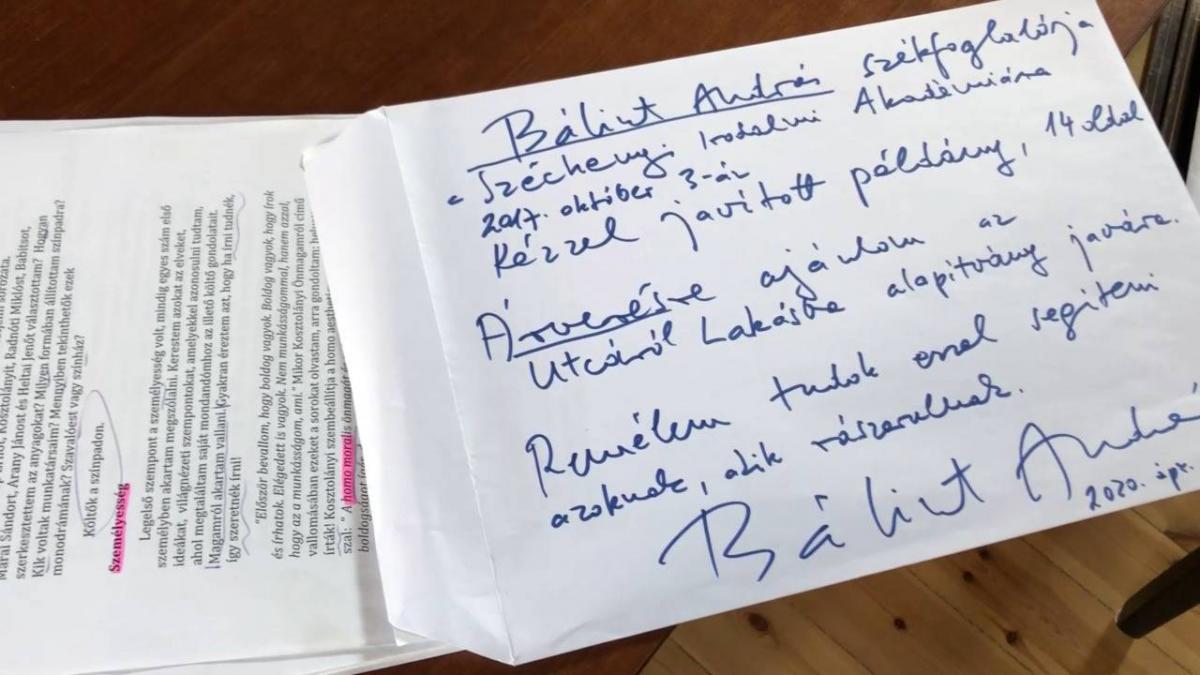 Bálint András székfoglalója
a Széchenyi Irodalmi Akadémiára
2017. október 3-án
Kézzel javított példány, 14 oldal
Árverésre ajánlom az
Utcáról Lakásba alapítvány javára.
Remélem tudok ezzel segíteni
azoknak, akik rászorulnak.
Bálint András
2020. ápr.
Márai Sándort, Arany Jánost és Heltai Jenőt választottam? Hogyan
szerkesztettem az anyagokat? Milyen formában állítottam színpadra?
Kik voltak munkatársaim? Mennyiben tekinthetők ezek
monodrámának? Szavalóest vagy színház?
Költők a színpadon.
Személyesség
Legelső szempont a személyesség volt, mindig egyes szám első
személyben akartam megszólalni. Kerestem azokat az elveket,
ideákat, világnézeti szempontokat, amelyekkel azonosulni tudtam,
ahol megtaláltam saját mondandómhoz az illető költő gondolatait.
Magamról akartam vallani. Gyakran éreztem azt, hogy ha írni tudnék,
így szeretnék írni!
"Először bevallom, hogy boldog vagyok. Boldog vagyok, hogy írok
és írhatok. Elégedett is vagyok. Nem munkásságommal, hanem azzal,
hogy az a munkásságom, ami." Mikor Kosztolányi Önmagamról című
vallomásában ezeket a sorokat olvastam, arra gondoltam:
írták! Kosztolányi szembeállítja a homo
szal: "A homo moralis önmagát
boldogságot